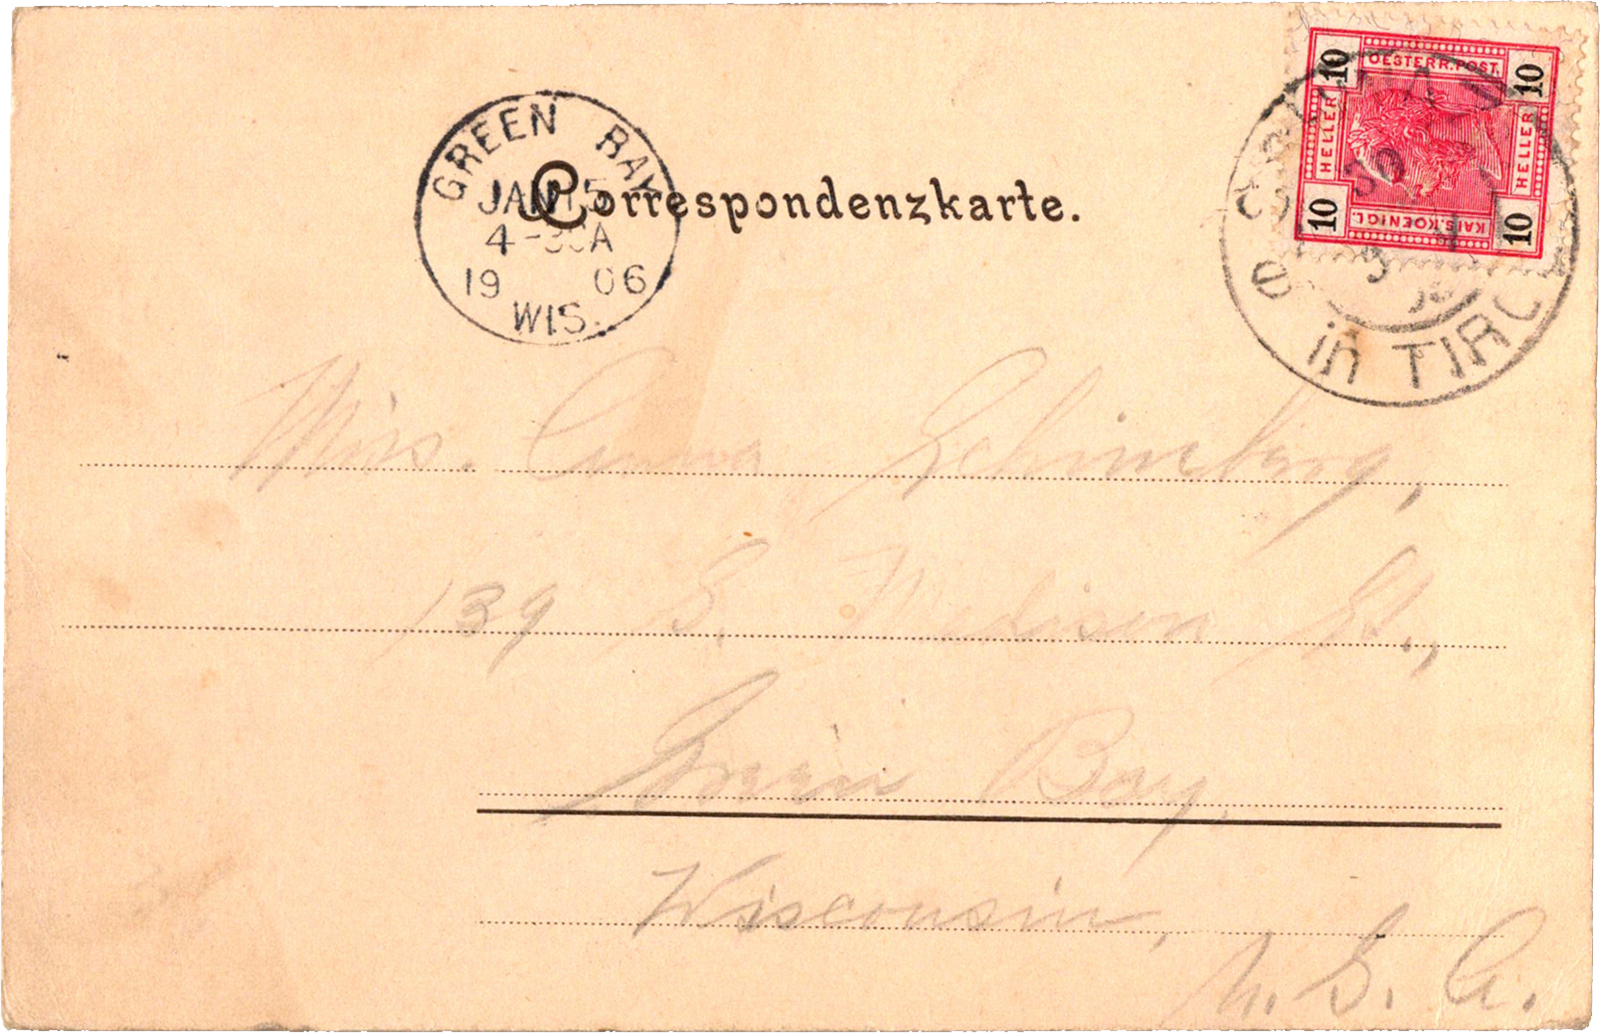 GREEN BAY
JAN 15
4-30A
19 06
WIS.
Correspondenzkarte.
OESTERR. POST.
10 HELLER 10
10 HELLER 10
KAIS. KOENIGL.
30
in TIROL
Miss. Anna
139 S. Madison St.,
Green Bay,
Wisconsin,
U. S. A.